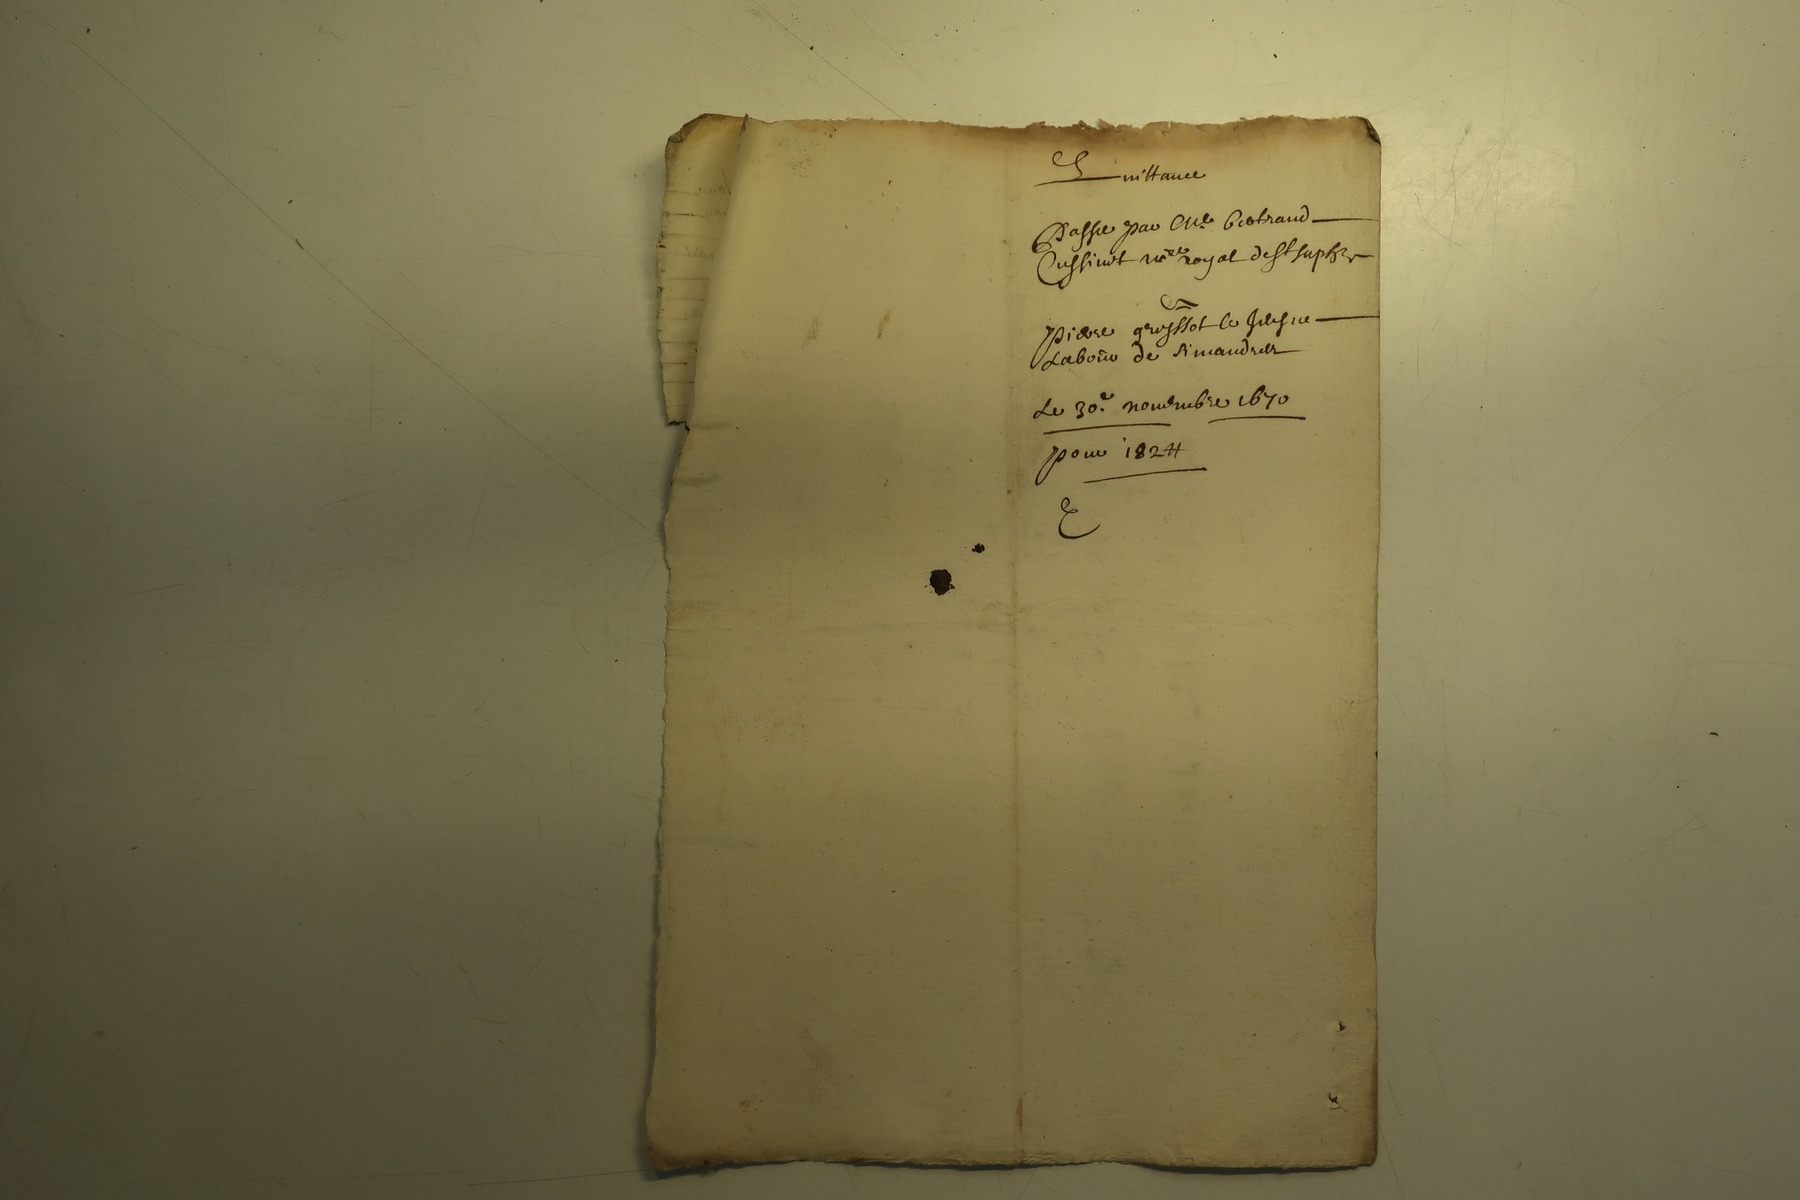 Quittance
Passée par Me Bertrand
Cussinet nre royal de St Suphr
A
Pierre grossot le jeusne
Labour de Simandres
Le 30e novembre 1670
pour 182 #
E